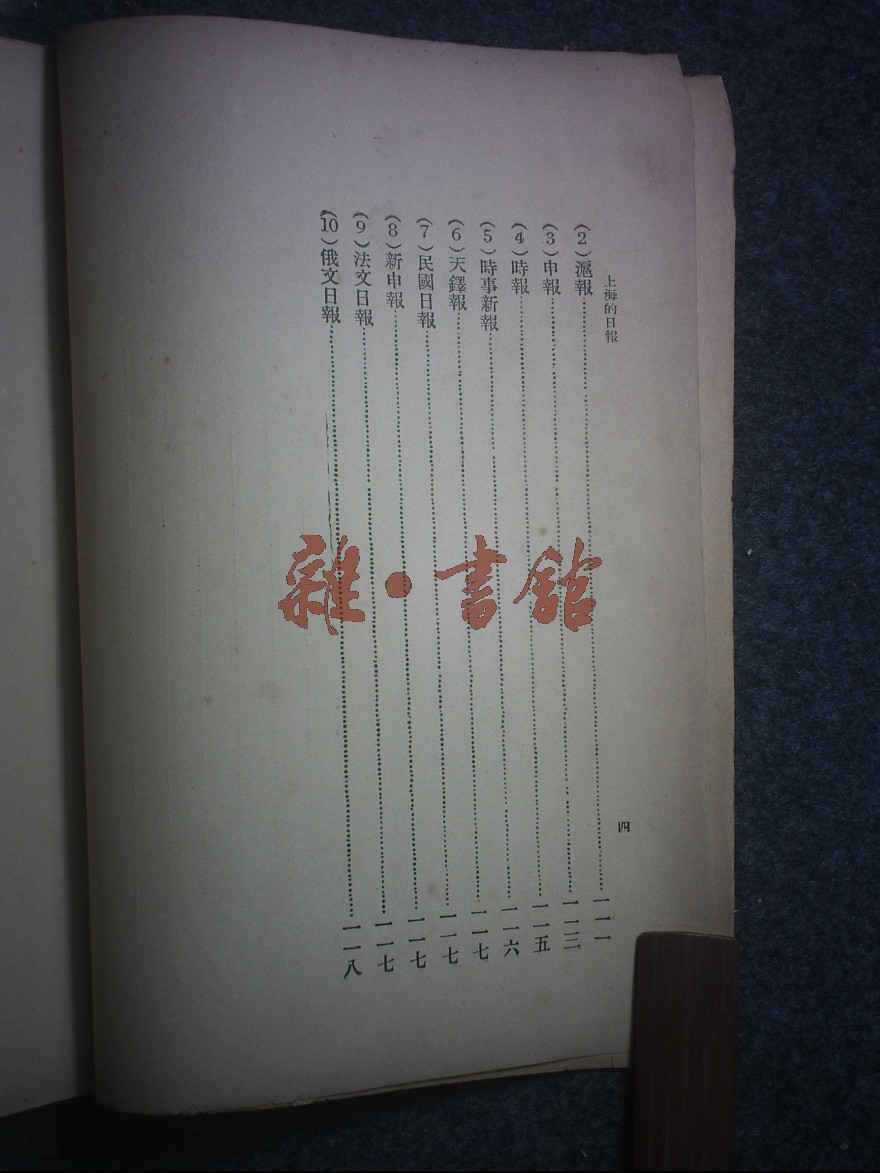 上海的日報
四
(2)滬報……一一一
(3)申報……一一三
(4)時報……一一五
(5)時事新報……一一六
(6)天鐸報……一一七
(7)民國日報……一一七
(8)新申報……一一七
(9)法文日報……一一七
(10)俄文日報……一一八
雜·書館